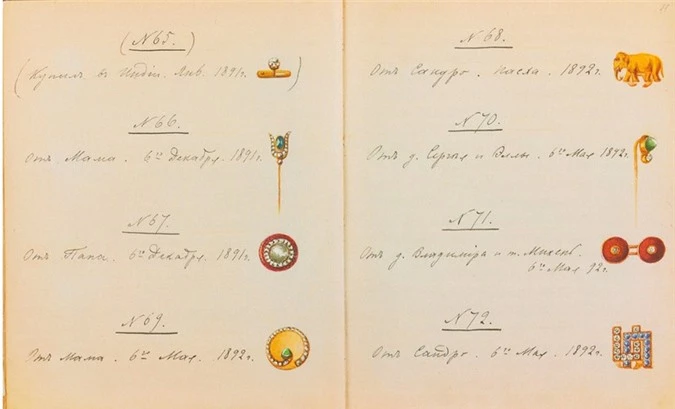 (N65.)
(Купилъ въ Индіи. Янв. 1891г.)
N66.
Отъ Мама. 6го Декабря. 1891г.
N67.
Отъ Папа. 6го Декабря. 1891г.
N69.
Отъ Мама. 6го Мая. 1892г.
N68.
Отъ Сандро. Пасха. 1892г.
N70.
Отъ д. Сергѣя и Эллы. 6го Мая 1892г.
N71.
Отъ д. Владиміра и т. Михень.
6го Мая 92г.
N72.
Отъ Сандро. 6го Мая. 1892г.